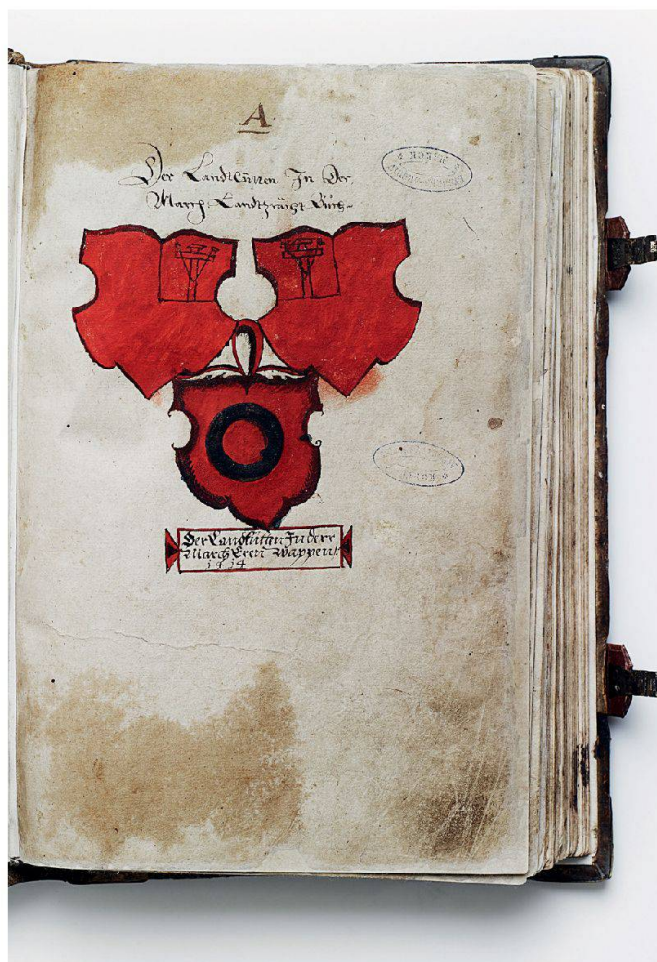 A
Der Landtlütten In Der
March Landtzrächt Buch
Der Landlütten In derr
March Eren Wappenn
1514